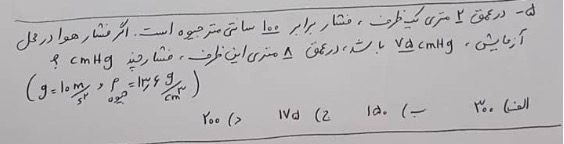 ۵- در عمق ۲ متری یک ظرف ، فشار برابر ۱۰۰ سانتی متر جیوه است. اگر فشار هوا در محل
آزمایش ، ۷۵ cmHg باشد، در عمق ۸ متری این ظرف ، فشار چند cmHg ؟
(g=۱۰ m/s² و ρ جیوه =۱۳٫۶ g/cm³)
الف) ۳۰۰ ب) ۱۵۰ ج) ۱۷۵ د) ۲۰۰